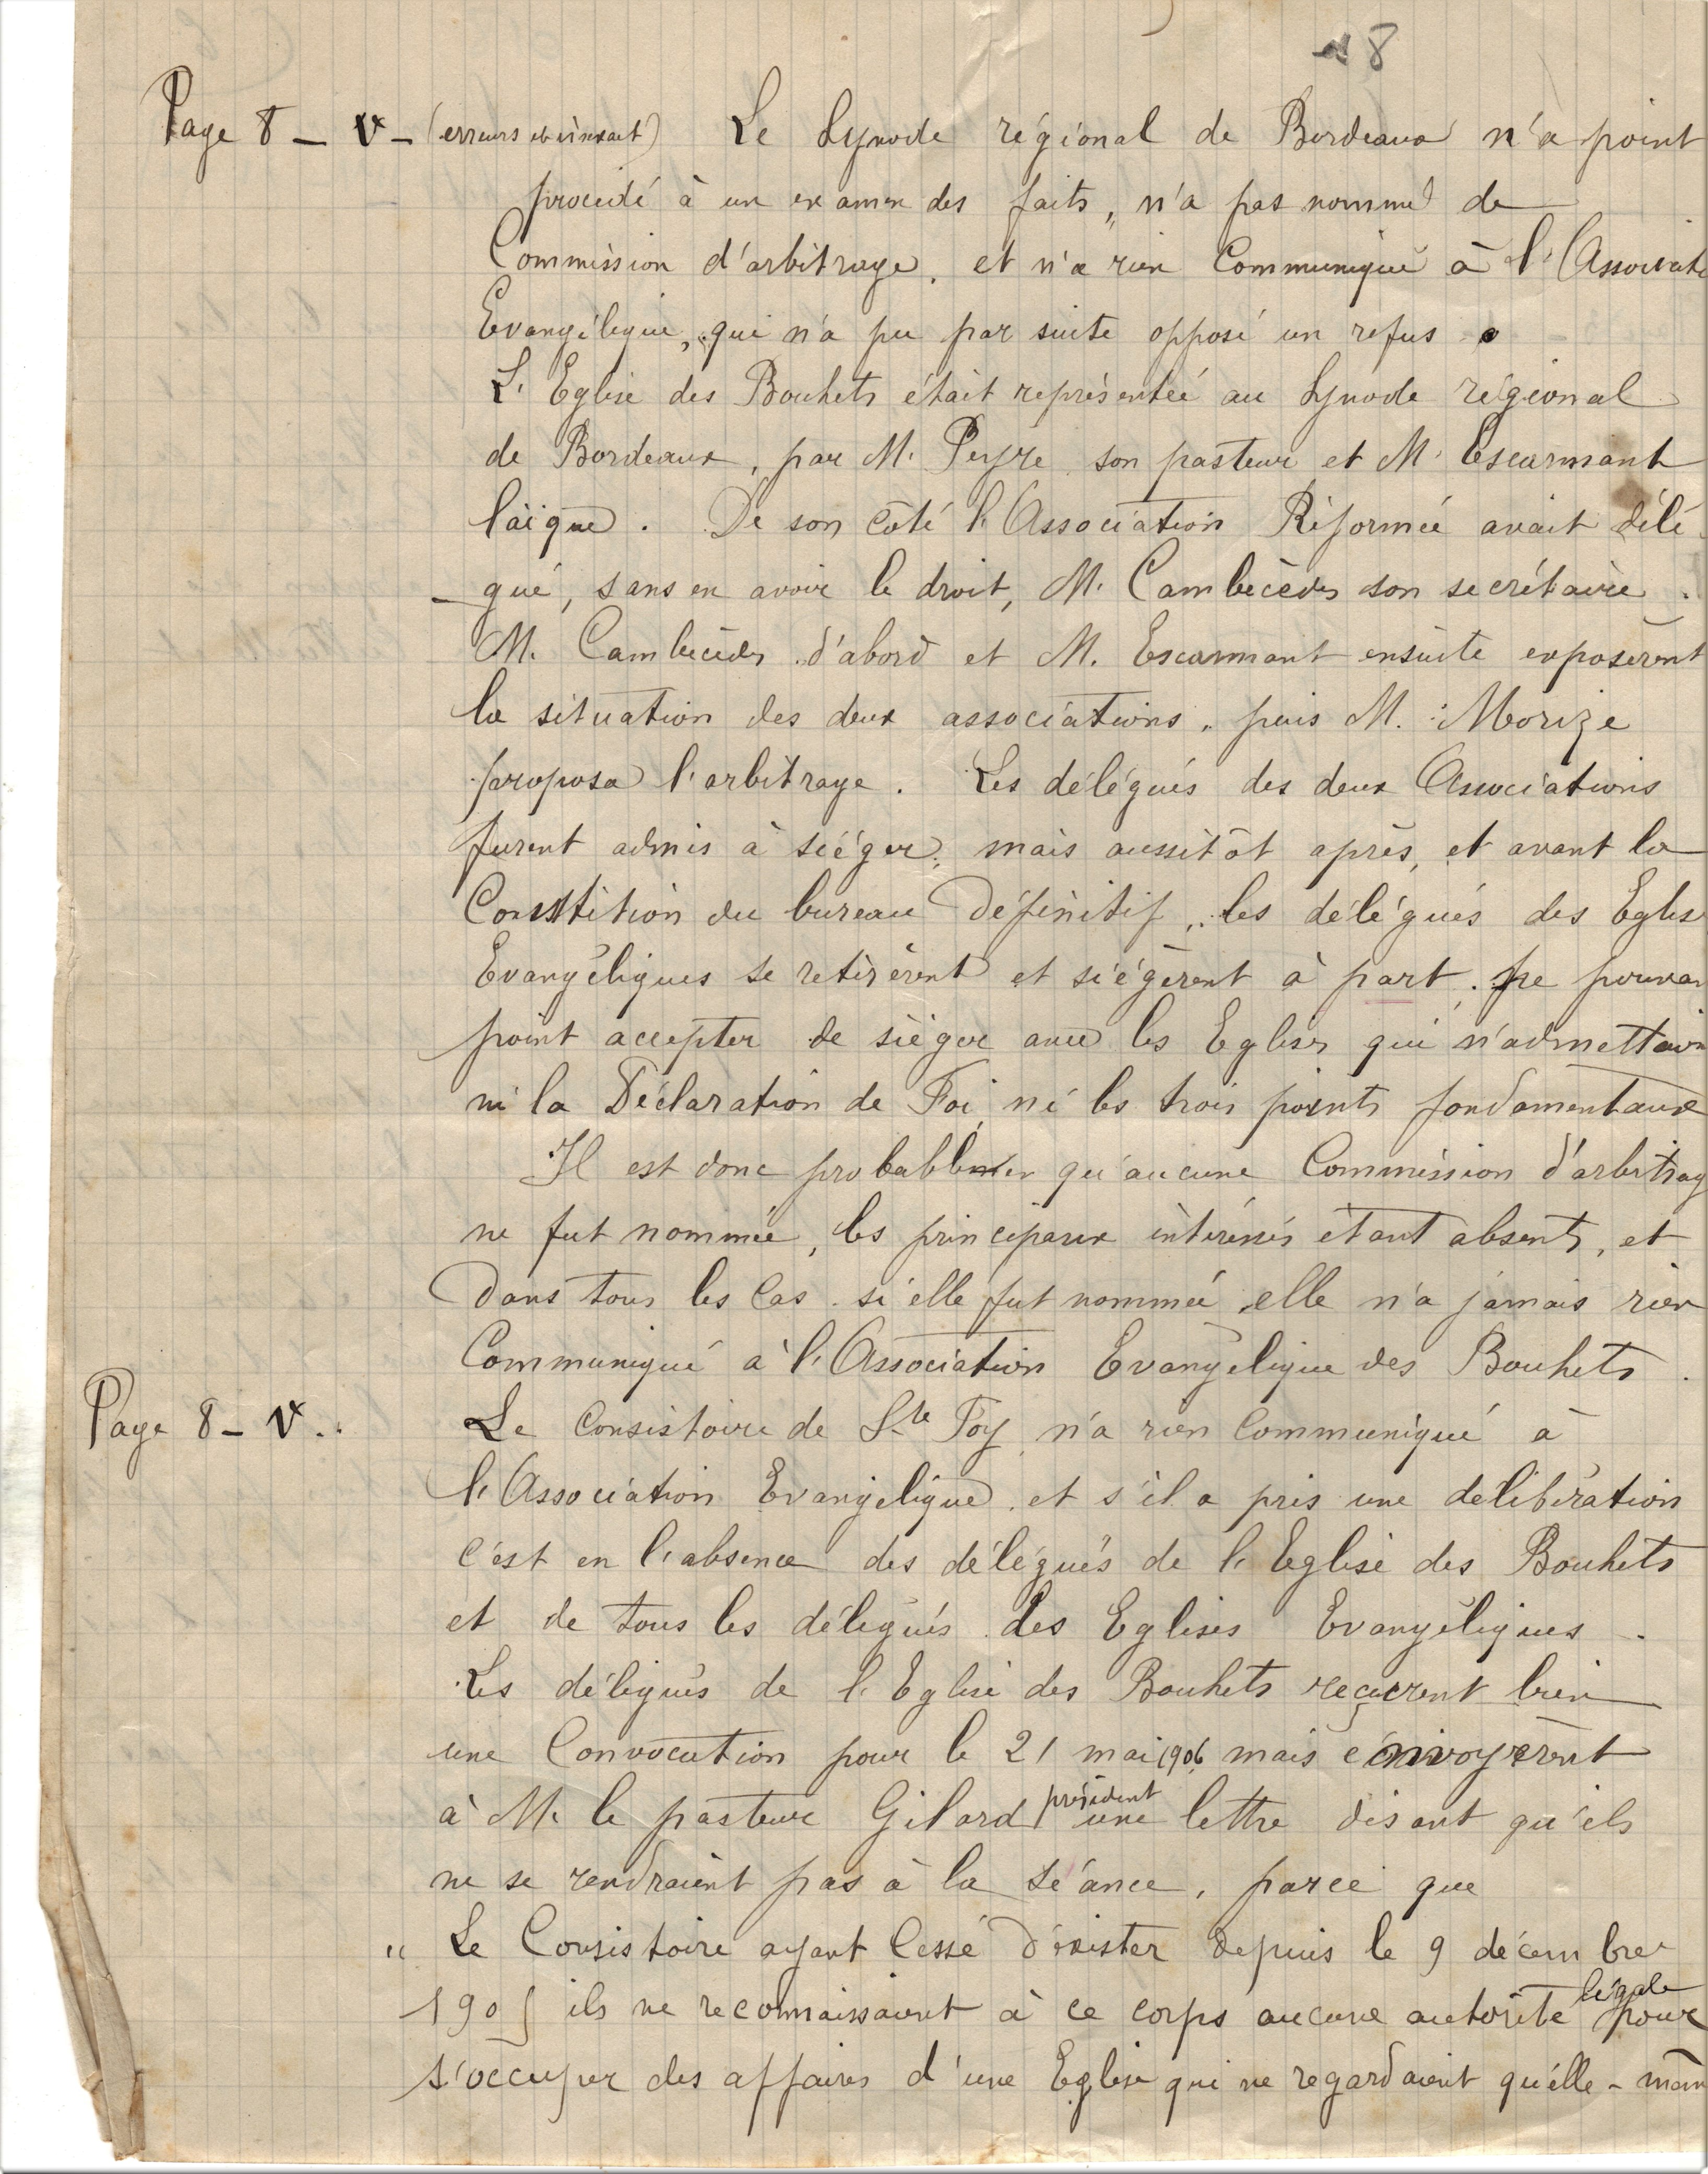 8
Page 8 - V - (erreurs et inexact) Le Synode régional de Bordeaux n'a point
procédé à un examen des faits, n'a pas nommé de
Commission d'arbitrage, et n'a rien Communiqué à l'Associati
Evangélique, qui n'a pu par suite opposé un refus.
L'Eglise des Bouhets était représentée au Synode régional
de Bordeaux, par M. Peyre son pasteur et M. Escarmant
laïque. De son côté l'Association Réformée avait délé
-gué, sans en avoir le droit, M. Cambécèdes son secrétaire.
M. Cambécèdes d'abord et M. Escarmant ensuite exposèrent
la situation des deux associations, puis M. Morize
proposa l'arbitrage. Les délégués des deux Associations
furent admis à siéger, mais aussitôt après, et avant la
Constitition du bureau définitif, les délégués des Eglis
Evangéliques se retirèrent et siégèrent à part, ne pouvan
point accepter de siéger avec les Eglises qui n'admettaien
ni la Déclaration de Foi, ni les trois points fondamentaux
Il est donc probable qu'aucune Commission d'arbitrag
ne fut nommée, les principaux intéressés étant absents, et
dans tous les Cas si elle fut nommée, elle n'a jamais rien
Communiqué à l'Association Evangélique des Bouhets.
Page 8 - V.. Le Consistoire de Ste Foy n'a rien Communiqué à
l'Association Evangélique, et s'il a pris une délibération
c'est en l'absence des délégués de l'Eglise des Bouhets
et de tous les délégués des Eglises Evangéliques.
Les délégués de l'Eglise des Bouhets reçurent bien
une Convocation pour le 21 mai 1906 mais envoyèrent
à M. le pasteur Gilard président une lettre disant qu'ils
ne se rendraient pas à la séance, parce que
" Le Consistoire ayant Cessé d'exister depuis le 9 décembre
1905 ils ne reconnaissaient à ce corps aucune autorité légale pour
s'occuper des affaires d'une Eglise qui ne regardaient qu'elle-mêm